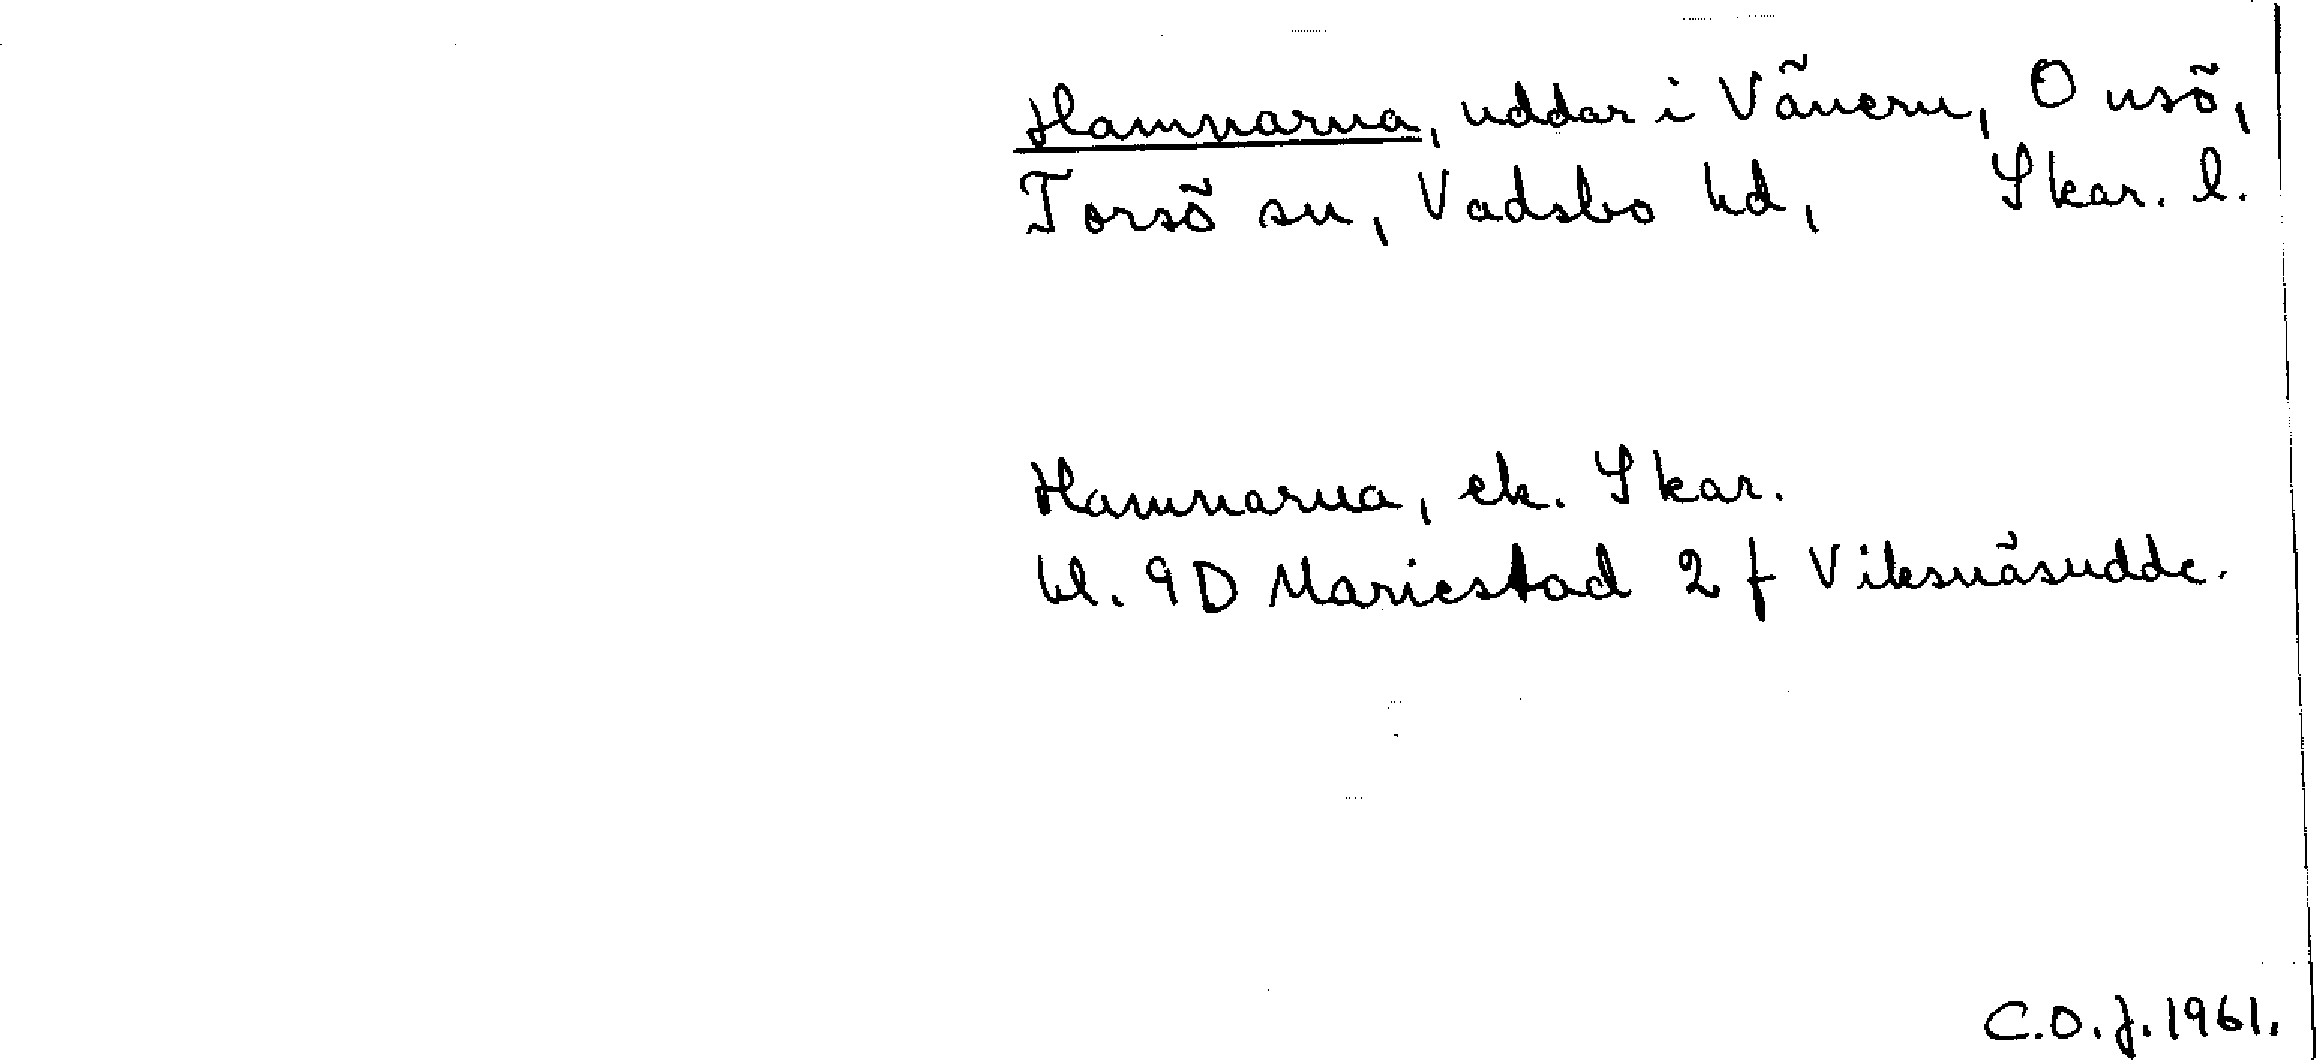 Hamnarna, uddar i Vänern, Onsö,
Torsö sn, Vadsbo hd, Skar. l.
Hamnarna, ek. Skar.
bl. 9D Mariestad 2 f Viksnäsudde.
C.O.J. 1961.